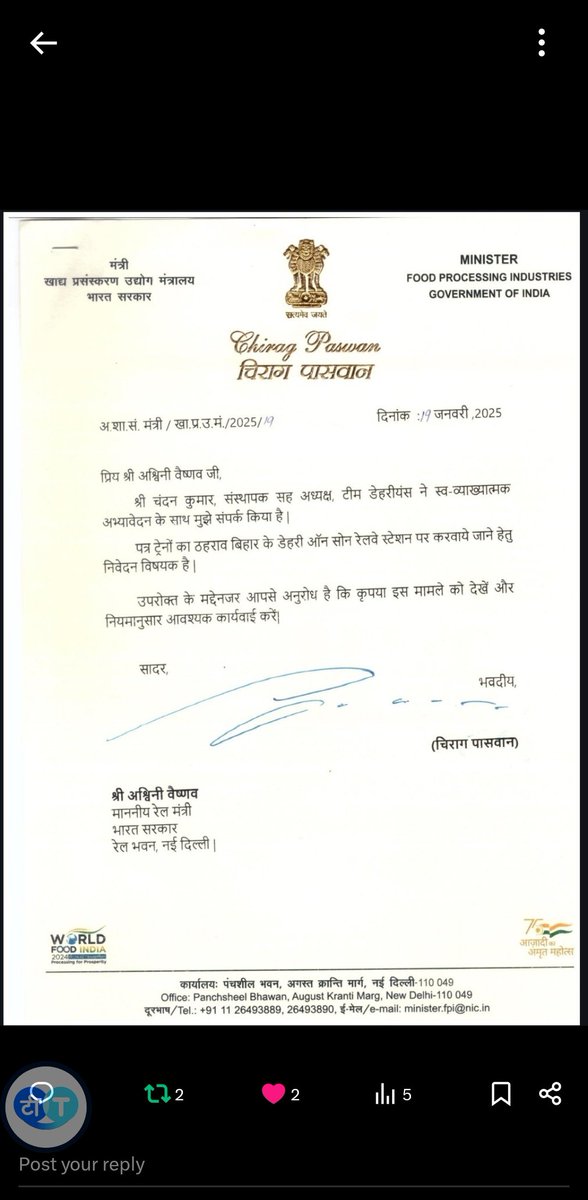 मंत्री
खाद्य प्रसंस्करण उद्योग मंत्रालय
भारत सरकार
सत्यमेव जयते
MINISTER
FOOD PROCESSING INDUSTRIES
GOVERNMENT OF INDIA
Chirag Paswan
चिराग पासवान
अ.शा.सं. मंत्री / खा.प्र.उ.मं./2025/19
दिनांक :19 जनवरी ,2025
प्रिय श्री अश्विनी वैष्णव जी,
श्री चंदन कुमार, संस्थापक सह अध्यक्ष, टीम डेहरीयंस ने स्व-व्याख्यात्मक
अभ्यावेदन के साथ मुझे संपर्क किया है|
पत्र ट्रेनों का ठहराव बिहार के डेहरी ऑन सोन रेलवे स्टेशन पर करवाये जाने हेतु
निवेदन विषयक है|
उपरोक्त के मद्देनजर आपसे अनुरोध है कि कृपया इस मामले को देखें और
नियमानुसार आवश्यक कार्यवाई करें|
सादर,
भवदीय,
(चिराग पासवान)
श्री अश्विनी वैष्णव
माननीय रेल मंत्री
भारत सरकार
रेल भवन, नई दिल्ली|
WORLD
FOOD INDIA
2024
Processing for Prosperity
75
आज़ादी का
अमृत महोत्सव
कार्यालय: पंचशील भवन, अगस्त क्रान्ति मार्ग, नई दिल्ली-110 049
Office: Panchsheel Bhawan, August Kranti Marg, New Delhi-110 049
दूरभाष/Tel.: +91 11 26493889, 26493890, ई-मेल/e-mail: minister.fpi@nic.in
टी T
2
2
5
Post your reply